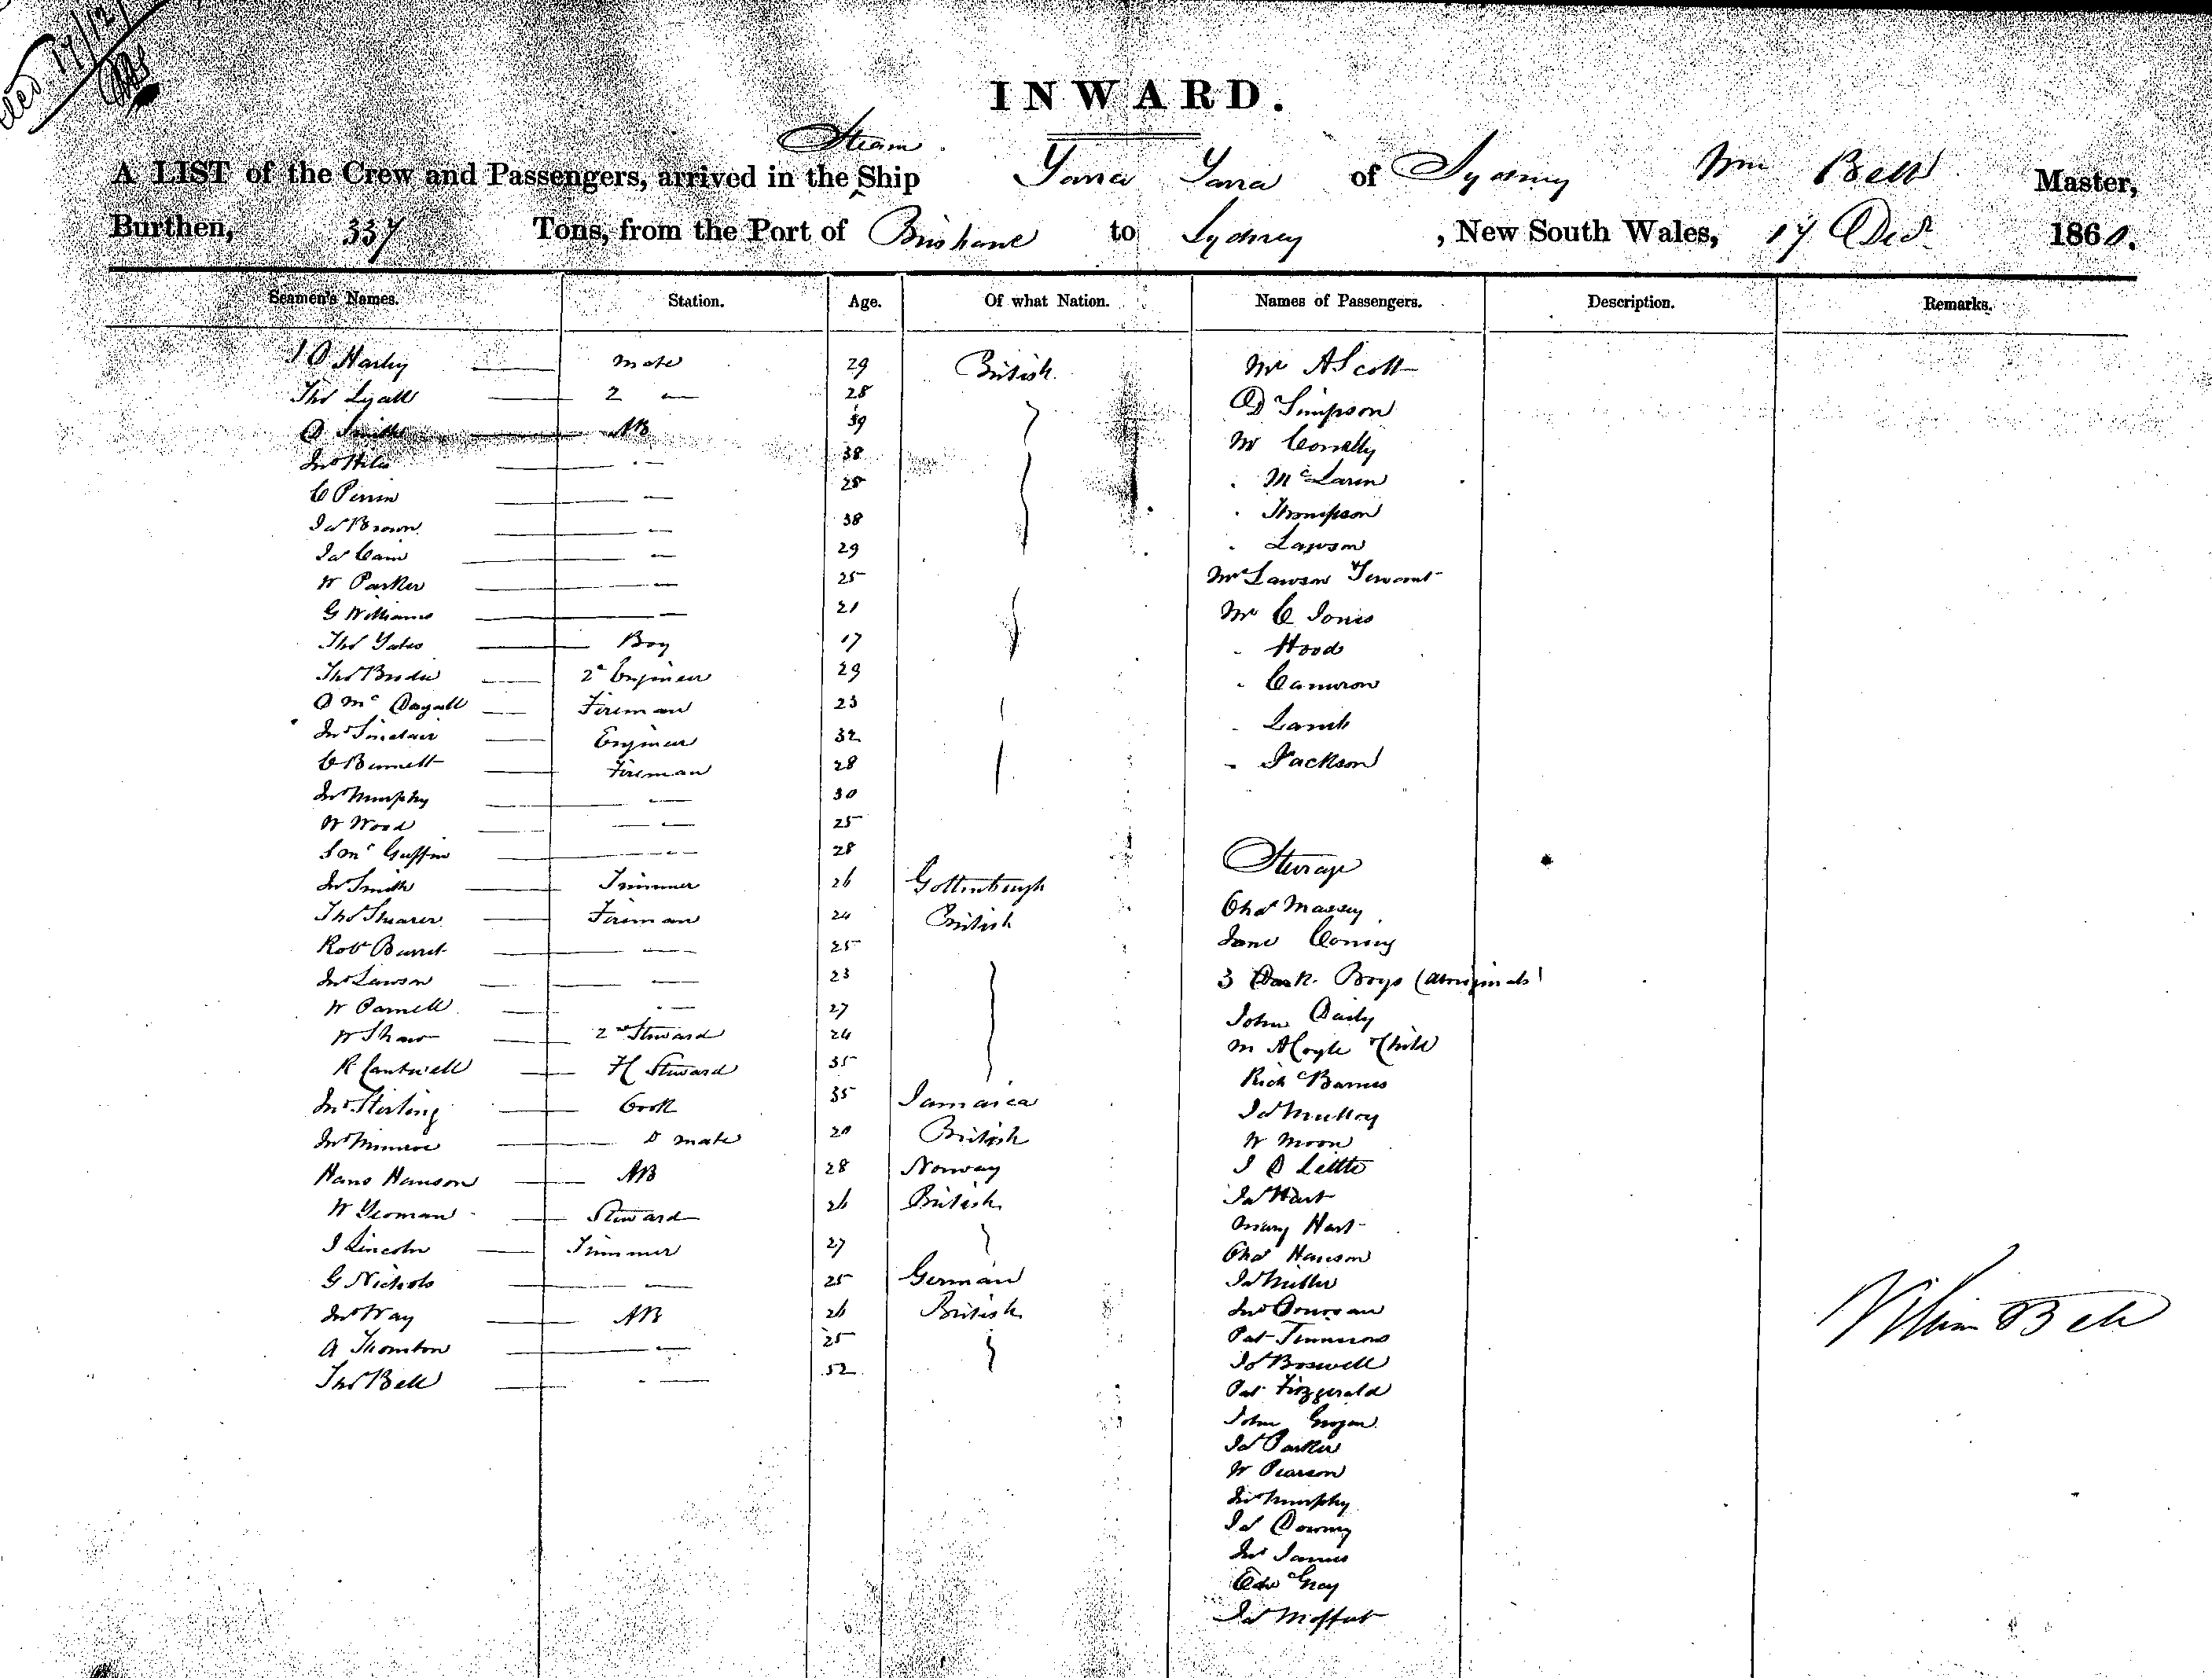 17/12/
INWARD.
Steam
A LIST of the Crew and Passengers, arrived in the Ship Yarra Yarra of Sydney Wm Bell Master,
Burthen, 337 Tons, from the Port of Brisbane to Sydney, New South Wales, 17 Decr 1860.
Seamen's Names. Station. Age. Of what Nation. Names of Passengers. Description. Remarks.
Mate 29 British Mr A Scott
Thos Lyall 2 — 28 Dr Simpson
D Smith AB 39 Mr Connelly
Jno 38 McLaren
C Perrin 25 Thompson
Jas Brown 38 Lawson
Jas Cain 29
W Parker 25 Mr Lawson Servant
G Williams 21 Mr C Jones
Thos Yates Boy 17 Hood
Thos 2d Engineer 29 Cameron
D Mc Fireman 23 Lamb
Jno Sinclair Engineer 32 Jackson
C Bennett Fireman 28
Jno Murphy 30
W Wood 25
S Mc Guffin 28 Steerage
Jno Smith Trimmer 26 Gottenburgh
Thos Shearer Fireman 24 British Chas Massey
Robt Barret 25 Jane
Jno Lawson 23 3 Dark Boys (Aboriginals)
W Parnell 27 John Daily
W Shaw 2nd Steward 24 M & Child
R Cantwell Steward 35 Rich Barnes
Jno Stirling Cook 35 Jamaica Jas Mulloy
Jno Munroe Do mate 20 British W Moon
Hans Hanson AB 28 Norway J D Little
W Yeoman Steward 26 British Jas Hart
Mary Hart
J Lincoln Trimmer 27 Chas Hanson
G Nichols 25 German Jas Miller
Jno Way AB 26 British Jno Donovan
A Thornton 25 Pat Timmons
Thos Bell 52 Jas Boswell
Pat Fitzgerald
John Grogan
Jas Parker
W Pearson
Jno Murphy
Jas Downey
Jno James
Edw Gray
Jas Moffat
William Bell